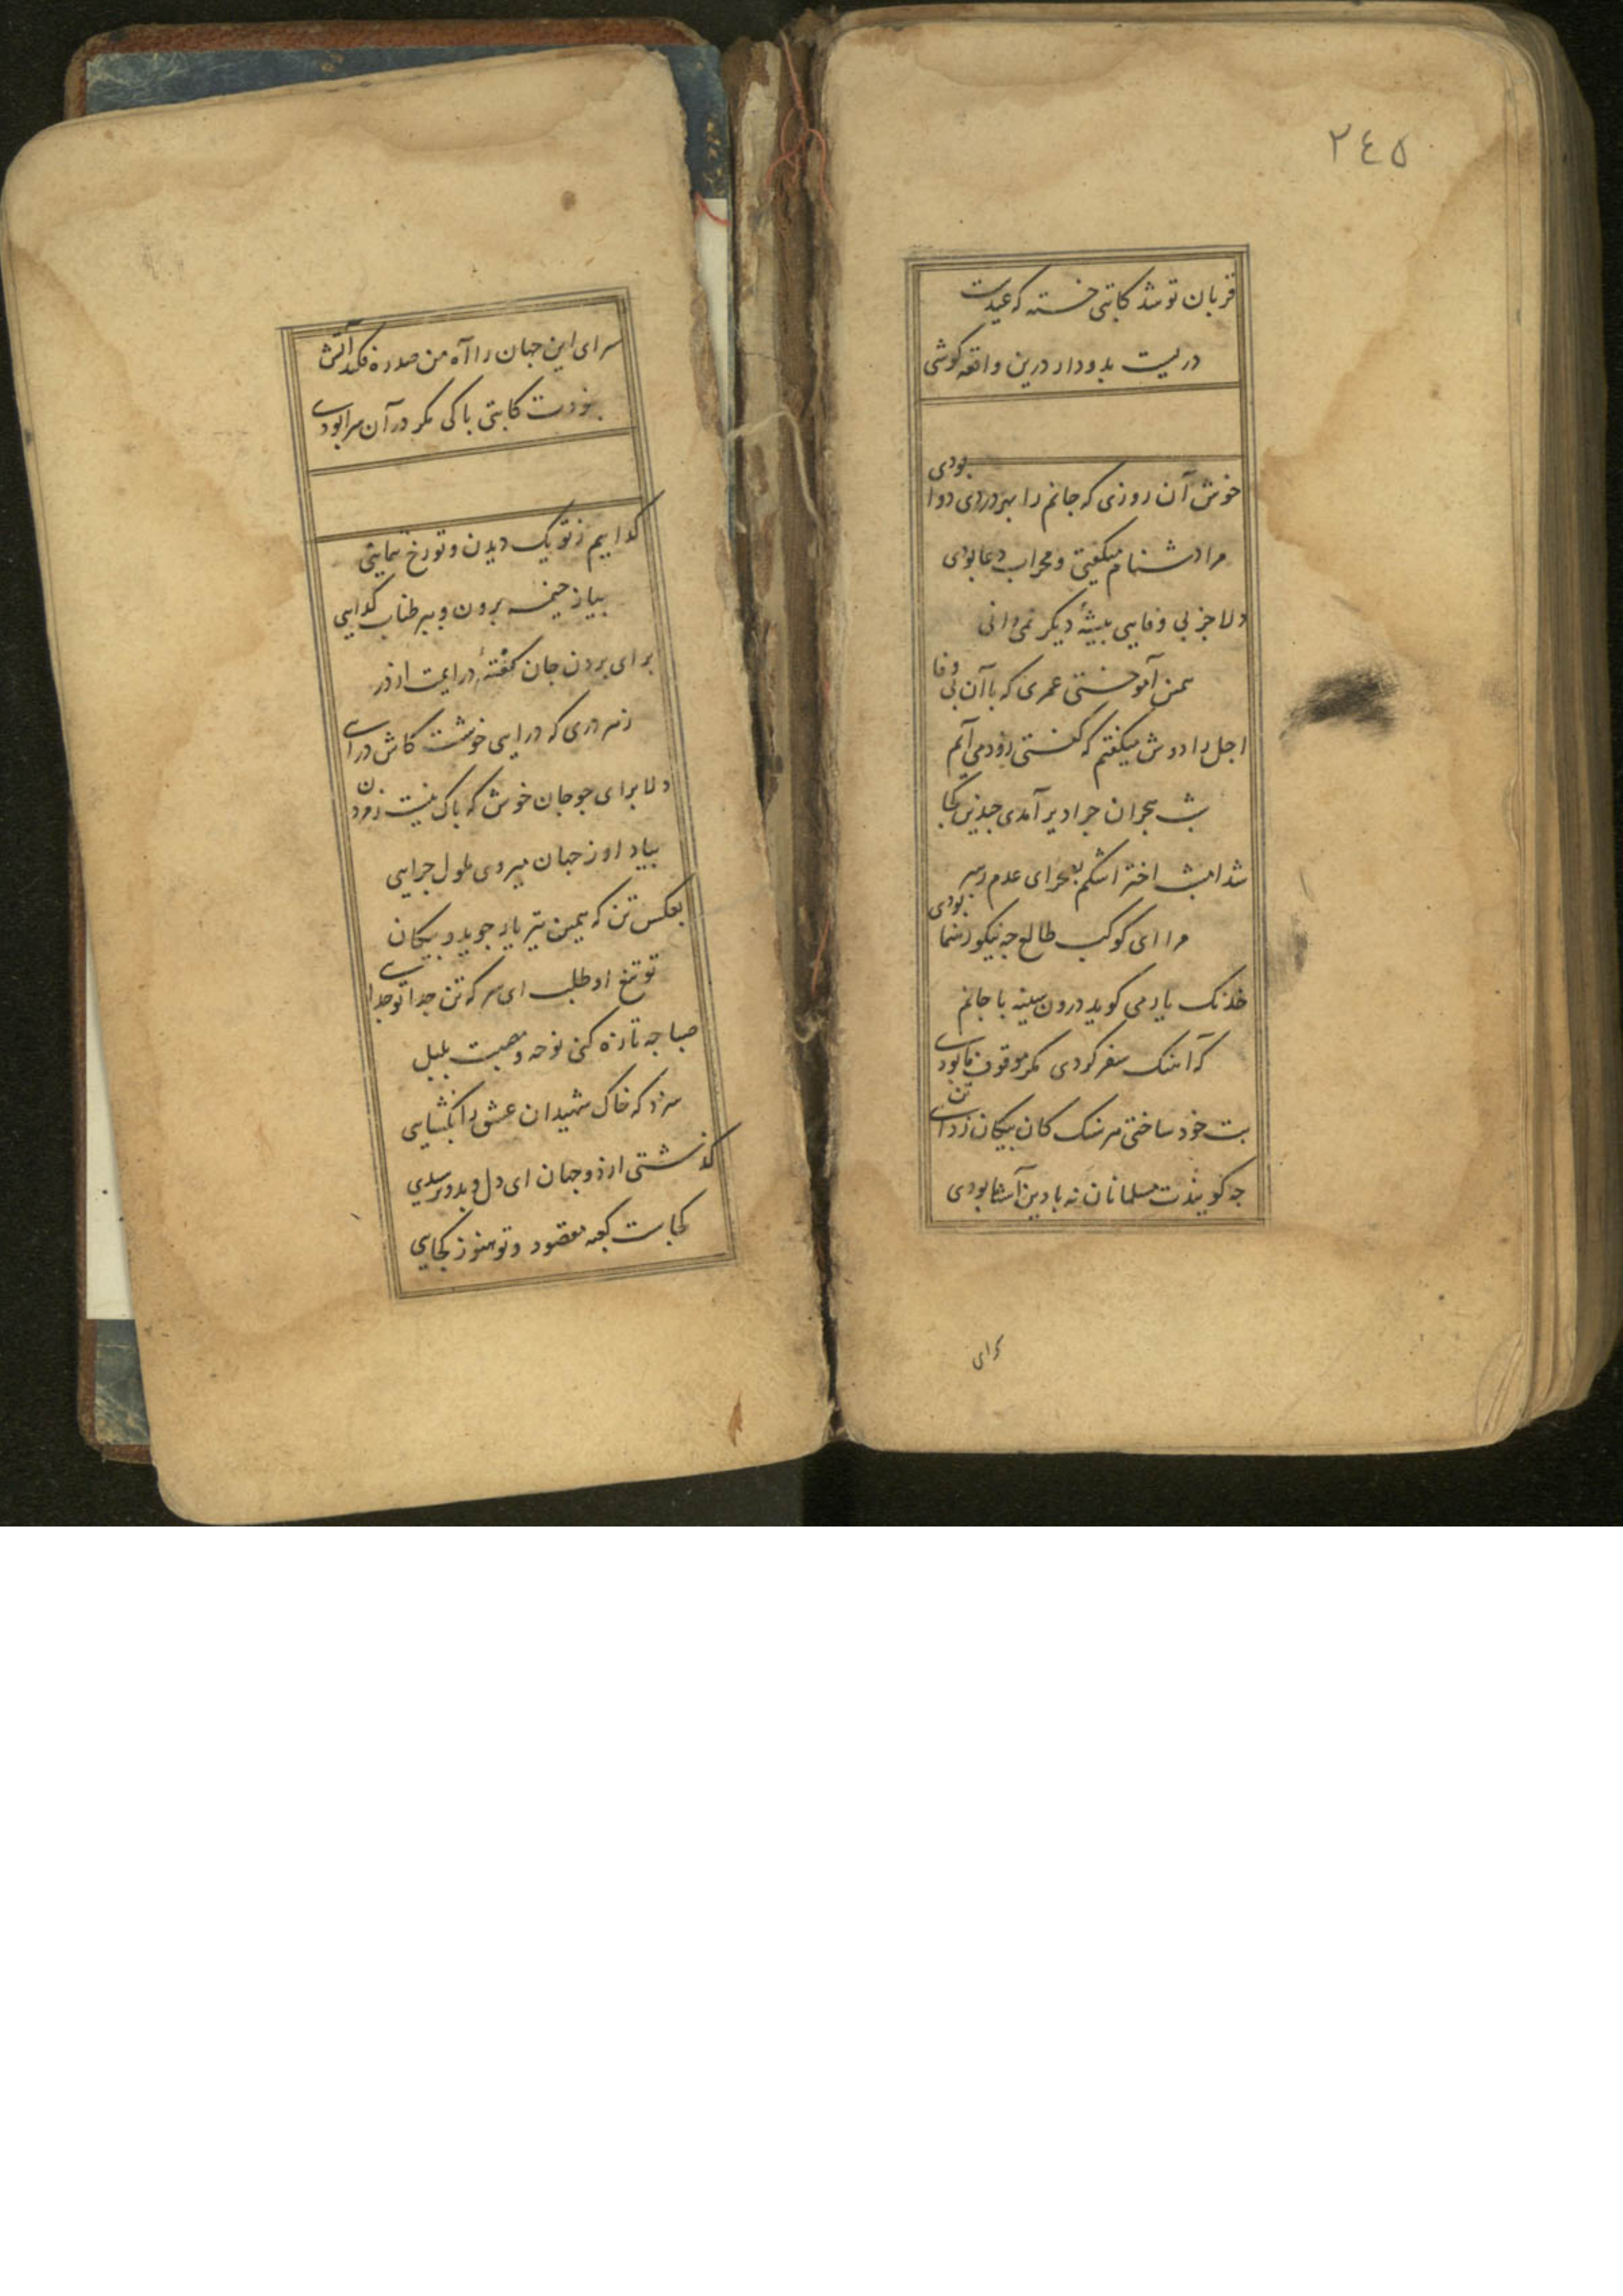 ٢٤٥
قربان تو شد کاتبی خسته که عیدست
دریست بدو دار درین واقعه گوشی
خوش آن روزی که جانم را بهر دردی دوا بودی
مرا دشنام میکفتی و محراب دعا بودی
دلا جز بی وفایی پیشهٔ دیگر نمی دانی
همین آموختی عمری که با آن بی وفا
اجل را دوش میکفتم که کفتی زود می آیم
شب هجران چرا دیر آمدی چندین کجا
شد امشب اختر اشکم بصحرای عدم رهبر
مرا ای کوکب طالع چه نیکو رهنما بودی
خدنک یار می کوید درون سینه با جانم
که آهنک سفر کردی مکر موقوف ما بودی
بت خود ساختی هر سنک کان پیکان زد ای تن
چه کویندت مسلمانان نه با دین آشنا بودی
سرای
سرای این جهان را آه من صد ره فکند آتش
نبودت کاتبی باکی مکر در آن سرا بودی
کداییم ز تو یک دیدن و تو رخ ننمایی
بیا ز خیمه برون و ببر طناب کدایی
برای بردن جان کفتهٔ درایمت از در
ز هر دری که درایی خوشست کاش درای
دلا برای چو جان خوش که باک نیست ز مردن
بیاد او ز جهان میروی ملول چرایی
بعکس تن که همین تیر یار جوید و پیکان
تو تیغ او طلب ای سر که تن جدا تو جدای
صبا چه تازه کنی نوحه و مصیبت بلبل
سزد که خاک شهیدان عشق را بکشایی
کذشتی از دو جهان ای دل و بدو نرسیدی
کجاست کعبه مقصود و تو هنوز کجایی